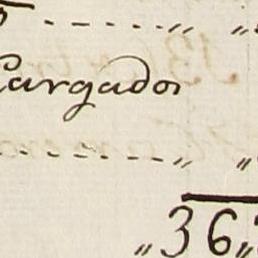 ----- „ „
Cargador
------- „ „
„ 36 „